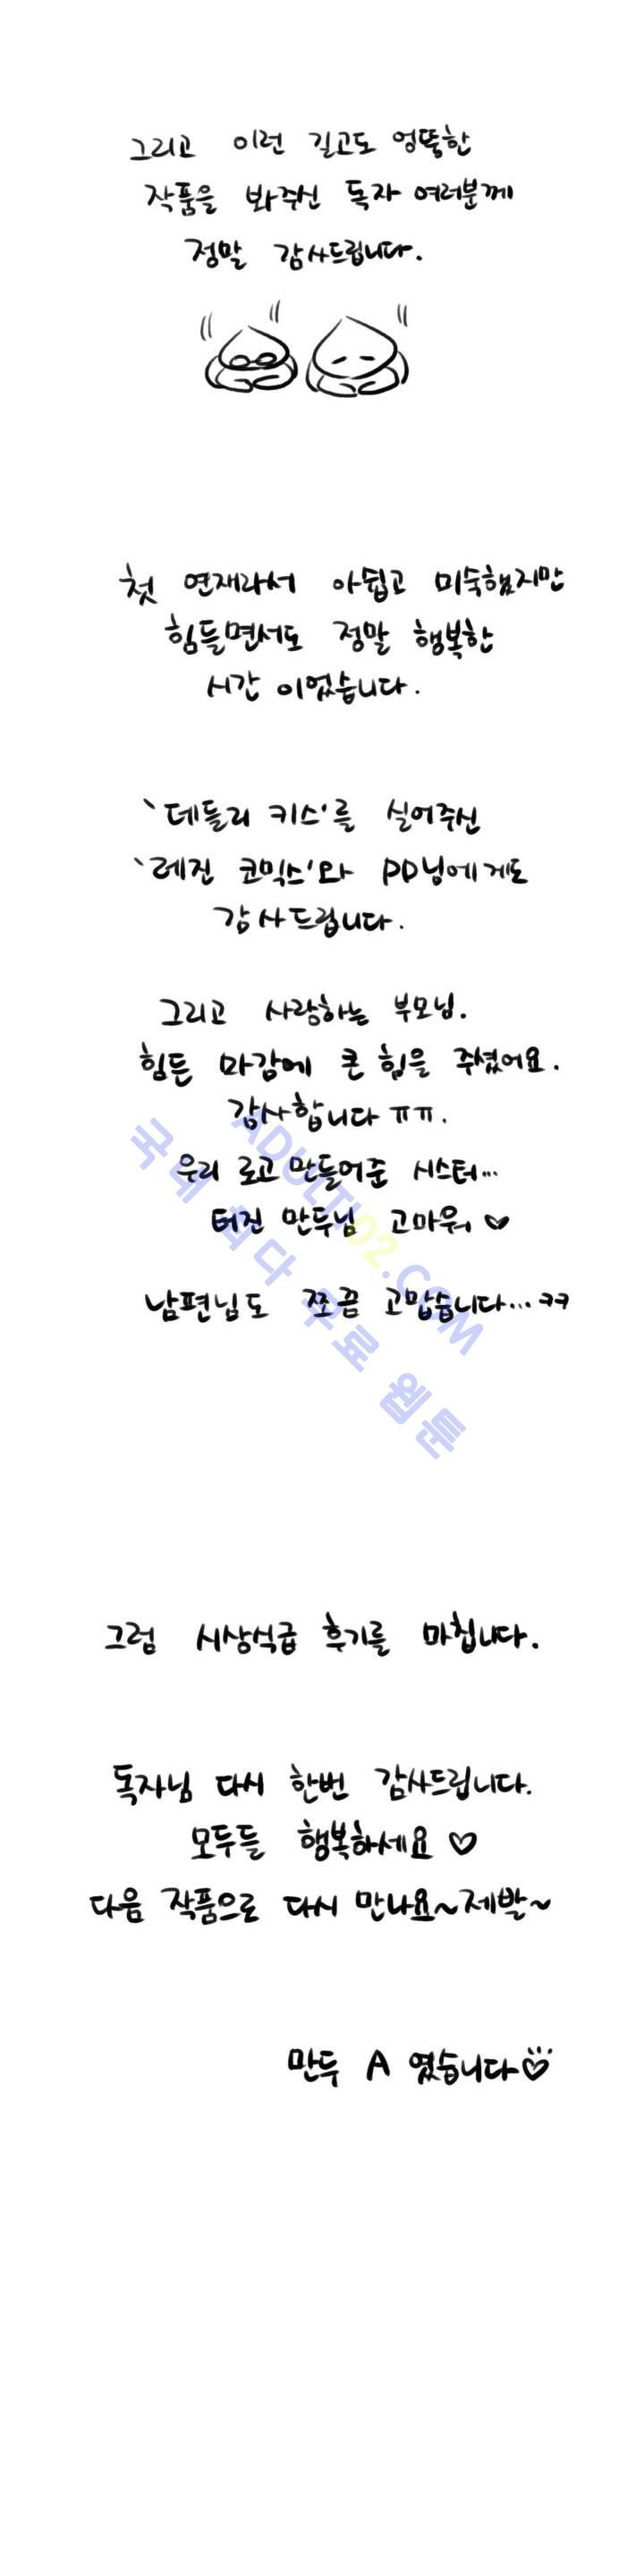 그리고 이런 길고도 엉뚱한
작품을 봐주신 독자 여러분께
정말 감사드립니다.
첫 연재라서 아쉽고 미숙했지만
힘들면서도 정말 행복한
시간 이었습니다.
'데들리 키스'를 실어주신
'레진 코믹스'와 PD님에게도
감사드립니다.
그리고 사랑하는 부모님.
힘든 마감에 큰 힘을 주셨어요.
감사합니다 ㅠㅠ.
우리 로고 만들어준 시스터...
터진 만두님 고마워 ♡
남편님도 쪼끔 고맙습니다... ㅋㅋ
ADULTI02.COM
국내 최다 무료 웹툰
그럼 시상식급 후기를 마칩니다.
독자님 다시 한번 감사드립니다.
모두들 행복하세요 ♡
다음 작품으로 다시 만나요~제발~
만두 A 였습니다♡